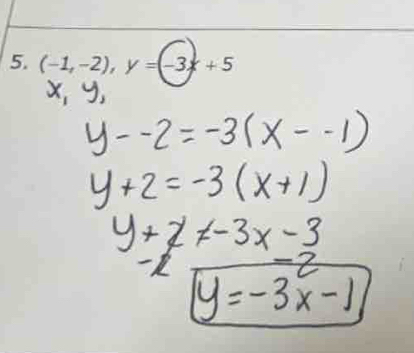 5. (-1,-2), y = -3x + 5
x, y,
y--2=-3(x--1)
y+2=-3(x+1)
y+2=-3x-3
-2 -2
y=-3x-1